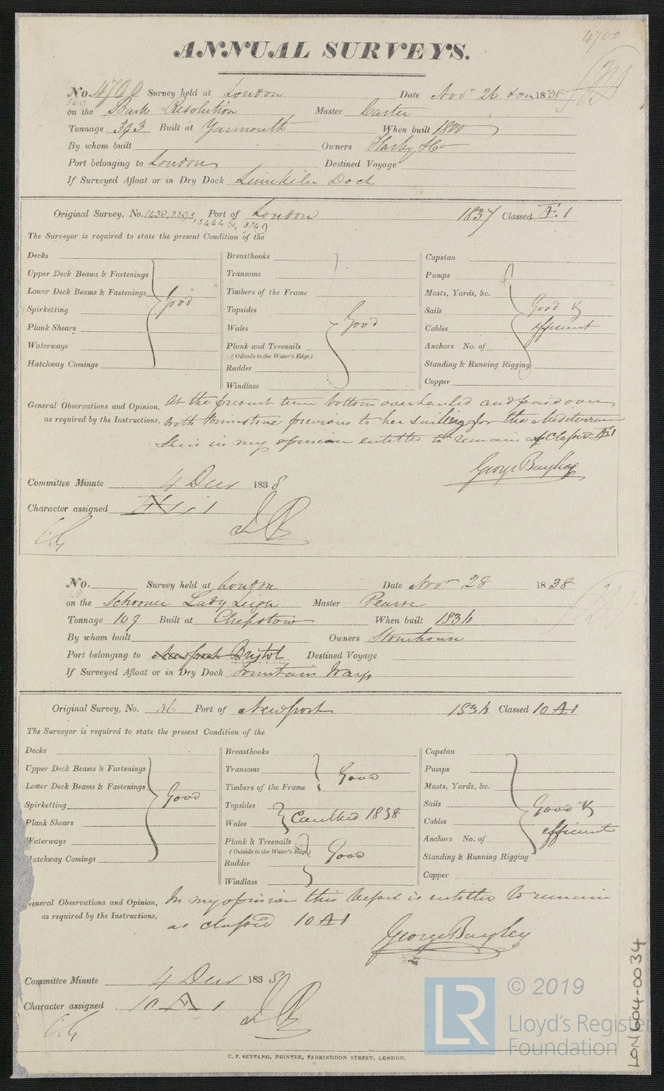 4700
ANNUAL SURVEYS.
No. 4700 Survey held at London Date Novr 26 1838
on the Bark Resolution Master Carter
Tonnage 313 Built at Yarmouth When built 1800
By whom built Owners
Port belonging to London Destined Voyage
If Surveyed Afloat or in Dry Dock Limekiln Dock
Original Survey, No. Port of London 1837 Classed Æ 1
The Surveyor is required to state the present Condition of the
Decks
Upper Deck Beams & Fastenings
Lower Deck Beams & Fastenings
Spirketting Good
Plank Shears
Waterways
Hatchway Comings
Breasthooks
Transoms
Timbers of the Frame
Topsides
Wales Good
Plank and Treenails
(Outside to the Water's Edge)
Rudder
Windlass
Capstan
Pumps
Masts, Yards, &c.
Sails Good &
Cables efficient
Anchors No. of
Standing & Running Rigging
Copper
General Observations and Opinion, At the present time bottom overhauled and paid over
as required by the Instructions, with brimstone previous to her sailing for the Mediterran
She is in my opinion entitled to remain as Classed Æ1
George Bayley
Committee Minute 4 Decr 1838
Character assigned Æ 1
No. Survey held at London Date Novr 28 1838
on the Schooner Lady Leigh Master Pearce
Tonnage 109 Built at Chepstow When built 1834
By whom built Owners
Port belonging to Newport Bristol Destined Voyage
If Surveyed Afloat or in Dry Dock Fountain Ways
Original Survey, No. 36 Port of Newport 1834 Classed 10 A1
The Surveyor is required to state the present Condition of the
Decks
Upper Deck Beams & Fastenings
Lower Deck Beams & Fastenings
Spirketting Good
Plank Shears
Waterways
Hatchway Comings
Breasthooks
Transoms Good
Timbers of the Frame
Topsides Caulked 1838
Wales
Plank & Treenails
(Outside to the Water's Edge) Good
Rudder
Windlass
Capstan
Pumps
Masts, Yards, &c.
Sails Good &
Cables efficient
Anchors No. of
Standing & Running Rigging
Copper
General Observations and Opinion, In my opinion this Vessel is entitled to remain
as required by the Instructions, as classed 10 A1
George Bayley
Committee Minute 4 Decr 1838
Character assigned 10 A 1
C. F. SEYFANG, PRINTER, FARRINGDON STREET, LONDON.
LR
© 2019
Lloyd's Register
Foundation
LON604-0034